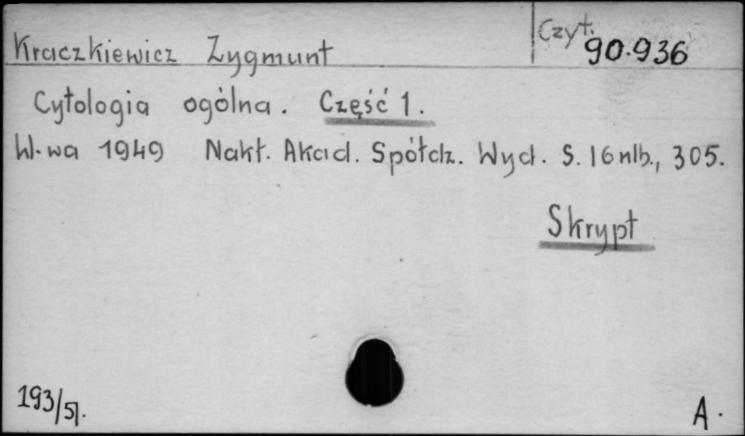 Czyt.
Kraczkiewicz Zygmunt 90.936
Cytologia ogólna. Część 1.
W-wa 1949 Nakł. Akad. Spółdz. Wyd. S. 16 nlb., 305.
Skrypt
193/51.
A.